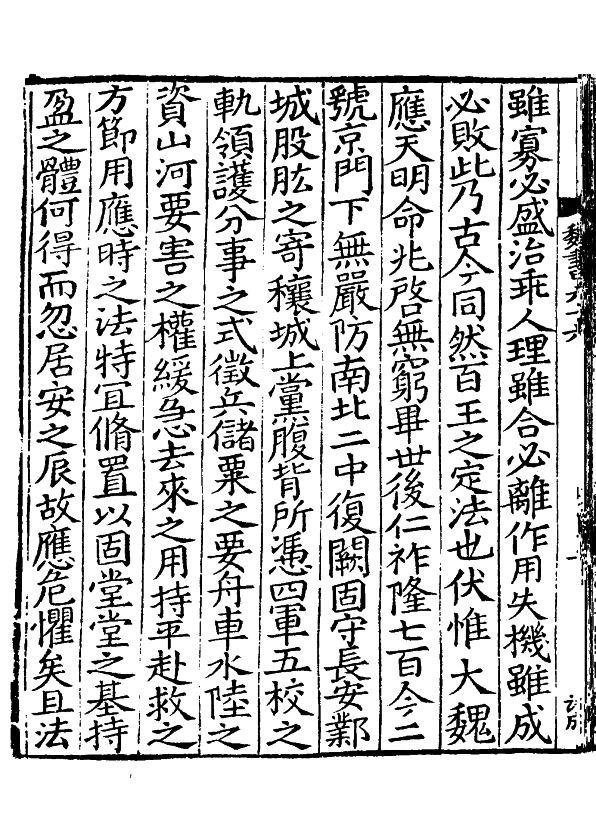 雖寡必盛治乖人理雖合必離作用失機雖成
必敗此乃古今同然百王之定法也伏惟大魏
應天明命兆啓無窮畢世後仁祚隆七百今二
號京門下無嚴防南北二中復闕固守長安鄴
城股肱之寄穰城上黨腹背所憑四軍五校之
軌領護分事之式徵兵儲粟之要舟車水陸之
資山河要害之權緩急去來之用持平赴救之
方節用應時之法特宜脩置以固堂堂之基持
盈之體何得而忽居安之辰故應危懼矣且法
魏書九十六